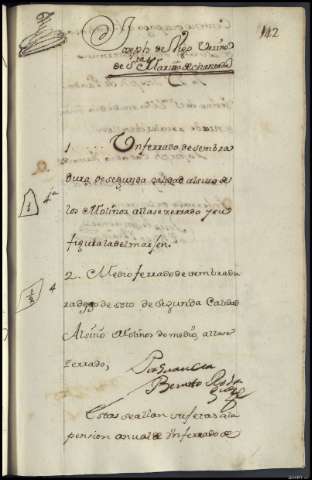 112
Joseph de Vigo Vecino
de Sta Marina de
1 Un ferrado de sembra
dura de segunda calidad al sitio de
los Molinos allase zerrado y su
figura la del marjen.
1
4a
2. Medio ferrado de sembradu
ra de soto de segunda Calidad
Al sitio Molinos do medio, allase
zerrado,
1/2
4
Benito
Estas se allan sujetas a la
pension anual de Un ferrado de